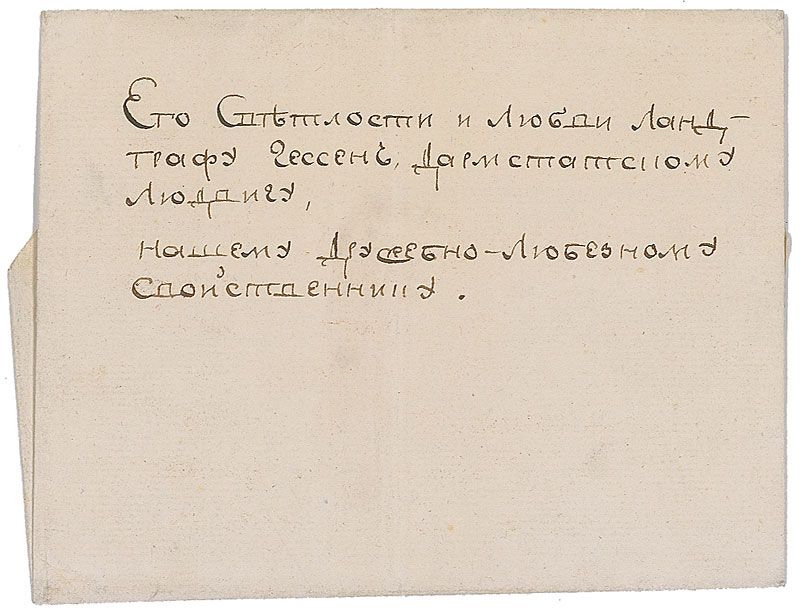 Его Свѣтлости и Любви Ланд-
графу Гессенъ, Дармстатскому
Людвигу,
нашему Дружебно-Любезному
Свойственнику.